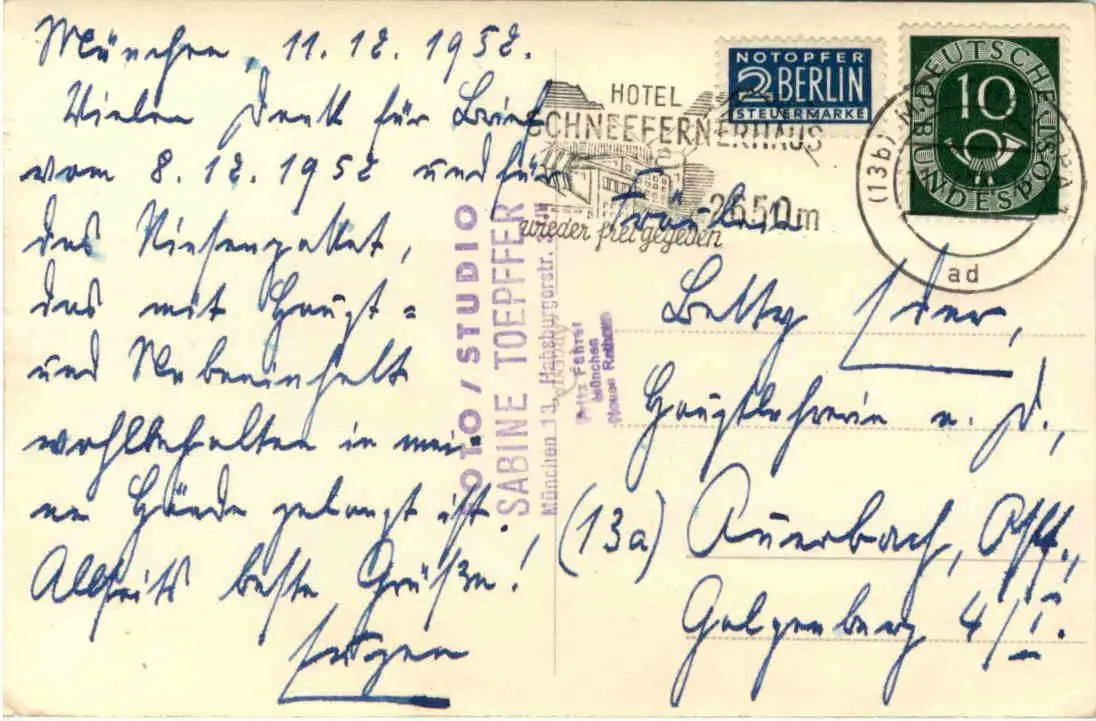 München, 11.12.1952.
Vielen Dank für Brief
vom 8.12.1952 und für
das Riesenpaket,
das mit Haupt-
und Nebeninhalt
wohlbehalten in mei-
ne Hände gelangt ist.
Allseits beste Grüße!
Eugen
FOTO/STUDIO
SABINE TOEPFFER
München 13, Habsburgerstr.
Fritz Fahrer
München
Neues Rathaus
HOTEL
SCHNEEFERNERHAUS
2650m
wieder frei gegeben
NOTOPFER
2 BERLIN
STEUERMARKE
DEUTSCHE
BUNDESPOST
10
(13b)
ad
Fräulein
Betty
Hauptlehrerin a. D.,
(13a) Auerbach, Opf.,
Galgenberg 4/I.